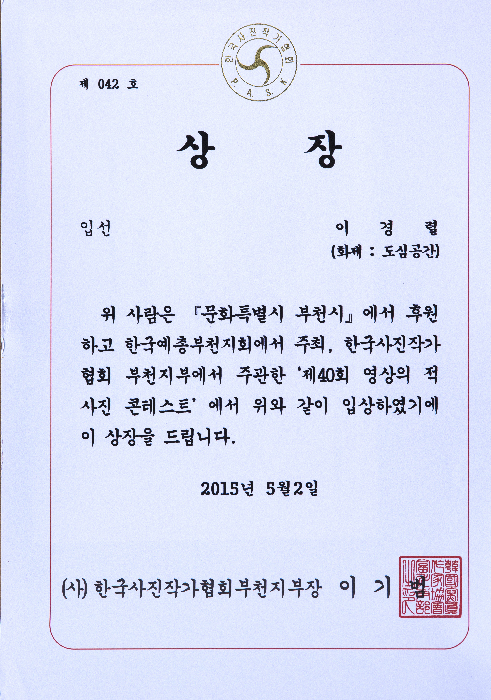 한국사진작가협회
P. A. S. K
제 042 호
상 장
입선
이 경 렬
(화제 : 도심공간)
위 사람은 『문화특별시 부천시』에서 후원
하고 한국예총부천지회에서 주최, 한국사진작가
협회 부천지부에서 주관한 '제40회 영상의 적
사진 콘테스트' 에서 위와 같이 입상하였기에
이 상장을 드립니다.
2015년 5월2일
(사) 한국사진작가협회부천지부장 이 기 범